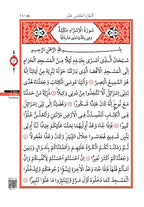 الجزء الخامس عشر
سُورَةُ الْإِسْرَاءِ مَكِّيَّةٌ
بِسْمِ اللَّهِ الرَّحْمَٰنِ الرَّحِيمِ
سُبْحَانَ الَّذِي أَسْرَىٰ بِعَبْدِهِ لَيْلًا مِنَ الْمَسْجِدِ الْحَرَامِ
إِلَى الْمَسْجِدِ الْأَقْصَا الَّذِي بَارَكْنَا حَوْلَهُ لِنُرِيَهُ مِنْ آيَاتِنَا إِنَّهُ
هُوَ السَّمِيعُ الْبَصِيرُ وَآتَيْنَا مُوسَى الْكِتَابَ وَجَعَلْنَاهُ هُدًى
لِبَنِي إِسْرَائِيلَ أَلَّا تَتَّخِذُوا مِنْ دُونِي وَكِيلًا ذُرِّيَّةَ مَنْ حَمَلْنَا
مَعَ نُوحٍ إِنَّهُ كَانَ عَبْدًا شَكُورًا وَقَضَيْنَا إِلَىٰ بَنِي إِسْرَائِيلَ
فِي الْكِتَابِ لَتُفْسِدُنَّ فِي الْأَرْضِ مَرَّتَيْنِ وَلَتَعْلُنَّ عُلُوًّا كَبِيرًا
فَإِذَا جَاءَ وَعْدُ أُولَاهُمَا بَعَثْنَا عَلَيْكُمْ عِبَادًا لَنَا أُولِي بَأْسٍ شَدِيدٍ
فَجَاسُوا خِلَالَ الدِّيَارِ وَكَانَ وَعْدًا مَفْعُولًا ثُمَّ رَدَدْنَا لَكُمُ الْكَرَّةَ
عَلَيْهِمْ وَأَمْدَدْنَاكُمْ بِأَمْوَالٍ وَبَنِينَ وَجَعَلْنَاكُمْ أَكْثَرَ نَفِيرًا
إِنْ أَحْسَنْتُمْ أَحْسَنْتُمْ لِأَنْفُسِكُمْ وَإِنْ أَسَأْتُمْ فَلَهَا
فَإِذَا جَاءَ وَعْدُ الْآخِرَةِ لِيَسُوءُوا وُجُوهَكُمْ وَلِيَدْخُلُوا
الْمَسْجِدَ كَمَا دَخَلُوهُ أَوَّلَ مَرَّةٍ وَلِيُتَبِّرُوا مَا عَلَوْا تَتْبِيرًا